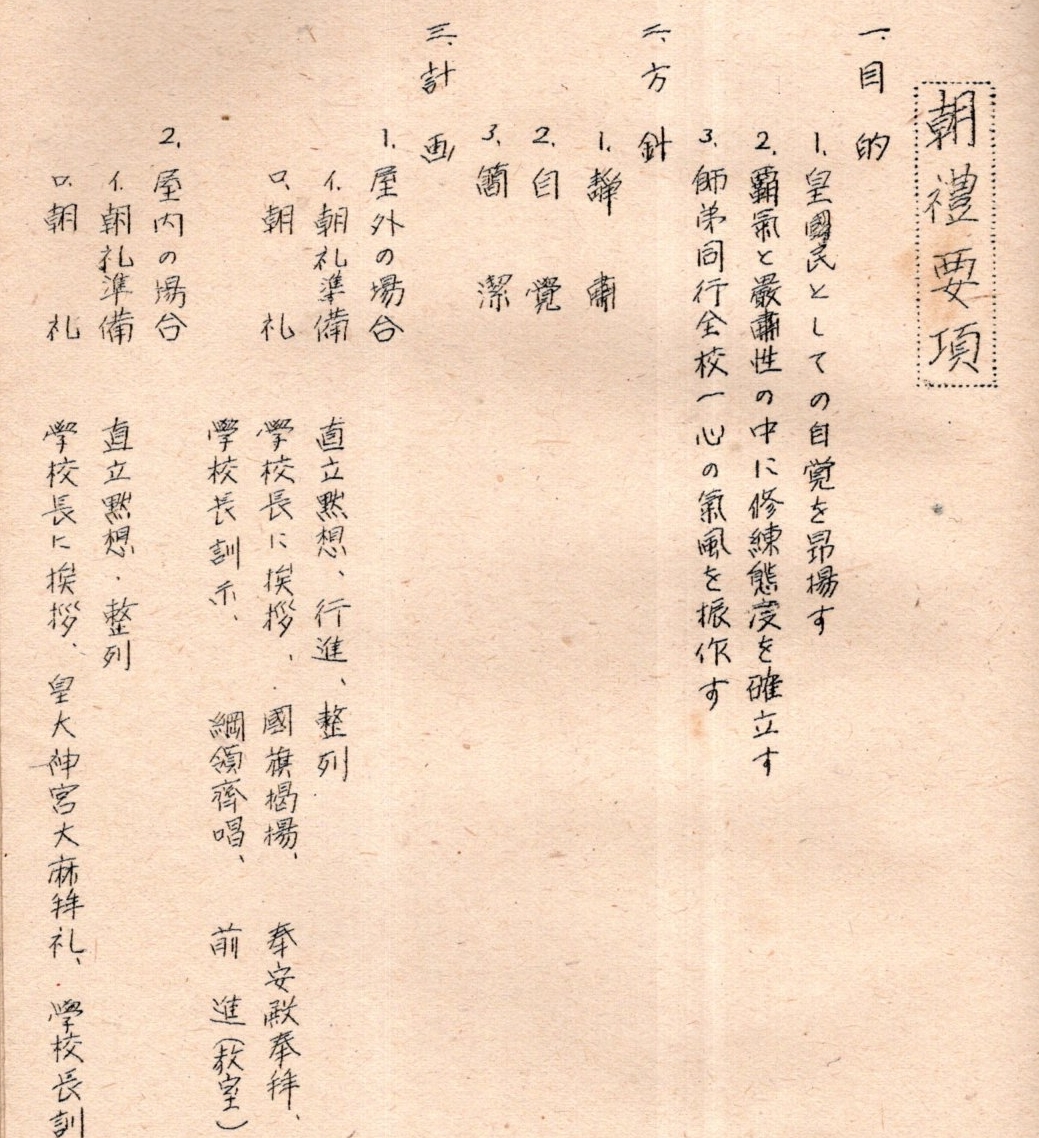 朝禮要項
一、目的
1. 皇國民としての自覚を昂揚す
2. 覇氣と嚴肅性の中に修練態度を確立す
3. 師弟同行全校一心の氣風を振作す
二、方針
1. 靜肅
2. 自覺
3. 簡潔
三、計画
1. 屋外の場合
イ. 朝礼準備 直立黙想、行進、整列
ロ. 朝礼 學校長に挨拶、國旗揭揚、奉安殿奉拜、
學校長訓示、綱領齊唱、前進(教室)
2. 屋内の場合
イ. 朝礼準備 直立黙想、整列
ロ. 朝礼 學校長に挨拶、皇大神宮大麻拜礼、學校長訓